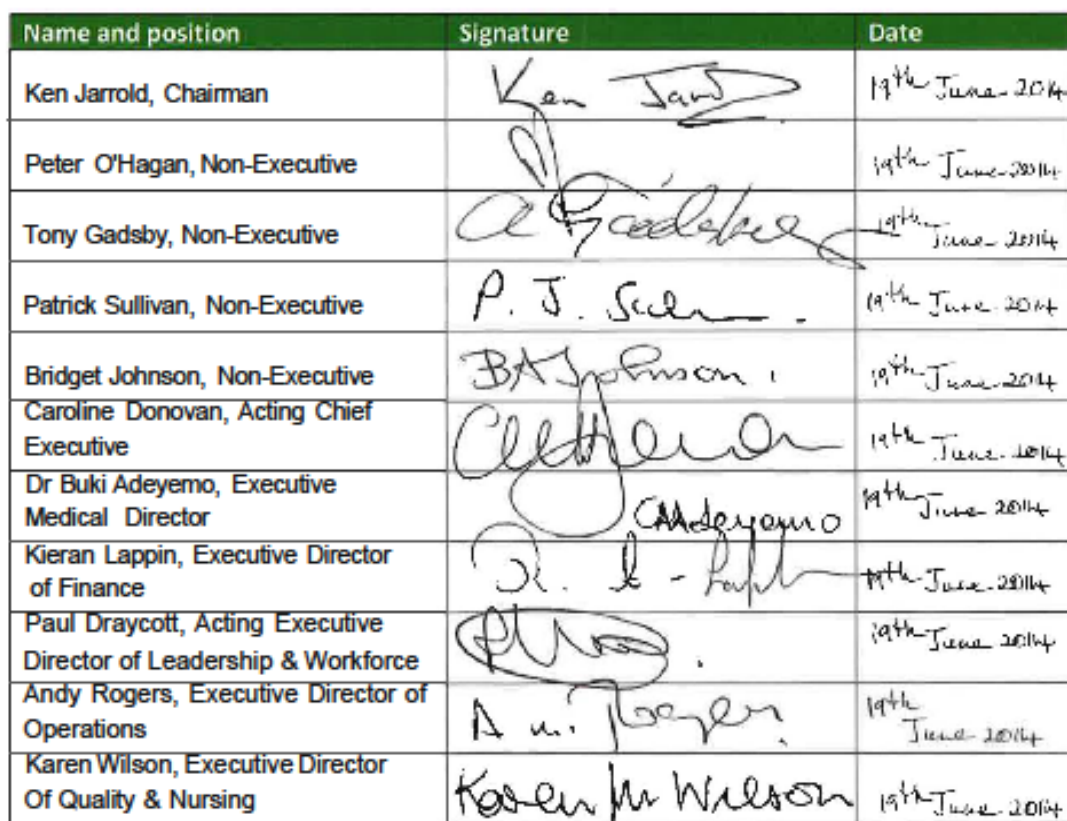 Name and position Signature Date
Ken Jarrold, Chairman Ken 19th June 2014
Peter O'Hagan, Non-Executive 19th June 2014
Tony Gadsby, Non-Executive 19th June 2014
Patrick Sullivan, Non-Executive P. J. 19th June 2014
Bridget Johnson, Non-Executive BA Johnson. 19th June 2014
Caroline Donovan, Acting Chief
Executive 19th June 2014
Dr Buki Adeyemo, Executive
Medical Director Adeyemo 19th June 2014
Kieran Lappin, Executive Director
of Finance 19th June 2014
Paul Draycott, Acting Executive
Director of Leadership & Workforce 19th June 2014
Andy Rogers, Executive Director of
Operations A m. Rogers. 19th June 2014
Karen Wilson, Executive Director
Of Quality & Nursing Karen M Wilson 19th June 2014